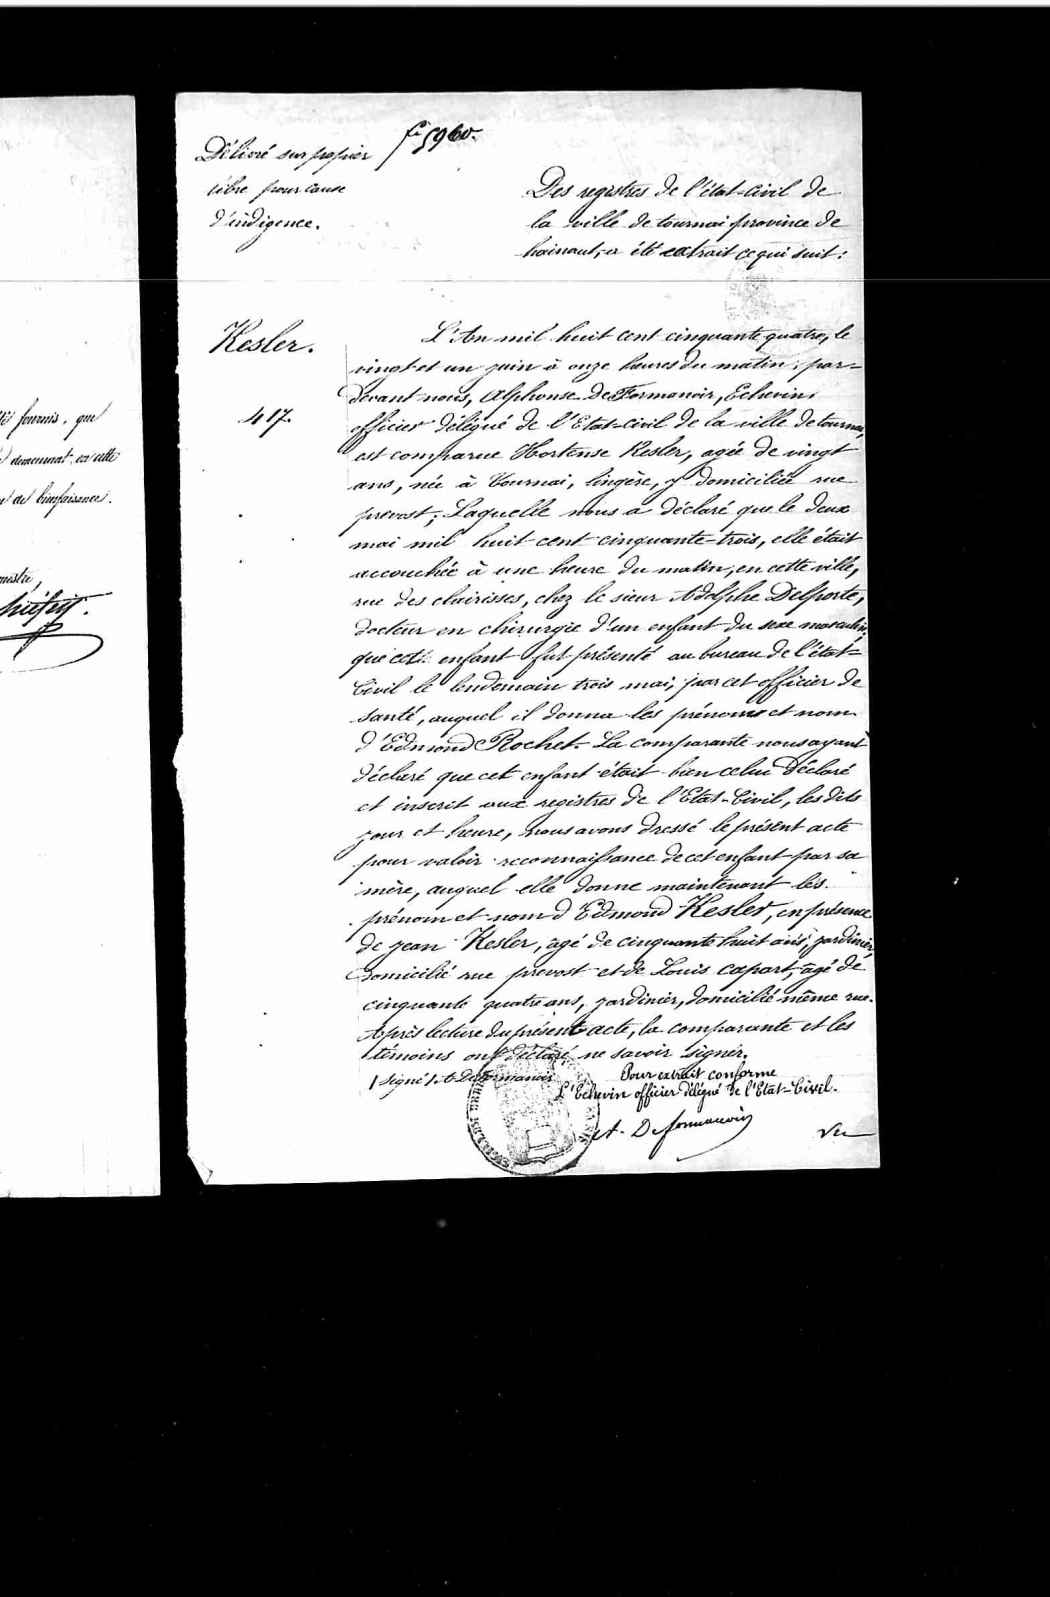 fournis, que
document en cette
de bienfaisance.
Délivré sur papier
libre pour cause
d'indigence.
5960.
Des registres de l'état-Civil de
la ville de tournai province de
hainaut, a été extrait ce qui suit:
Kesler.
417.
L'An mil huit cent cinquante quatre, le
vingt et un juin à onze heures du matin, par-
devant nous, Alphonse DeFormanoir, Echevin,
officier délégué de l'Etat-civil de la ville de tournai,
est comparue Hortense Kesler, agée de vingt
ans, née à Tournai, lingère, y domiciliée rue
prevost; Laquelle nous a déclaré que le deux
mai mil huit cent cinquante-trois, elle était
accouchée à une heure du matin, en cette ville,
rue des clairisses, chez le sieur Adolphe Delporte,
docteur en chirurgie d'un enfant du sexe masculin,
que cet enfant fut présenté au bureau de l'état-
Civil le lendemain trois mai, par cet officier de
santé, auquel il donna les prénoms et nom
d'Edmond Rochet. La comparante nous ayant
déclaré que cet enfant était bien celui déclaré
et inscrit aux registres de l'Etat-Civil, les dits
jour et heure, nous avons dressé le présent acte
pour valoir reconnaissance de cet enfant par sa
mère, auquel elle donne maintenant les
prénom et nom d'Edmond Kesler, en présence
de jean Kesler, âgé de cinquante huit ans, jardinier,
domicilié rue prevost et de Louis capart, âgé de
cinquante quatre ans, jardinier, domicilié même rue.
Après lecture du présent acte, la comparante et les
témoins ont déclaré ne savoir signer.
(signé) A. DeFormanoir
Pour extrait conforme
L'Echevin officier délégué de l'Etat-Civil.
A. DeFormanoir
Vu